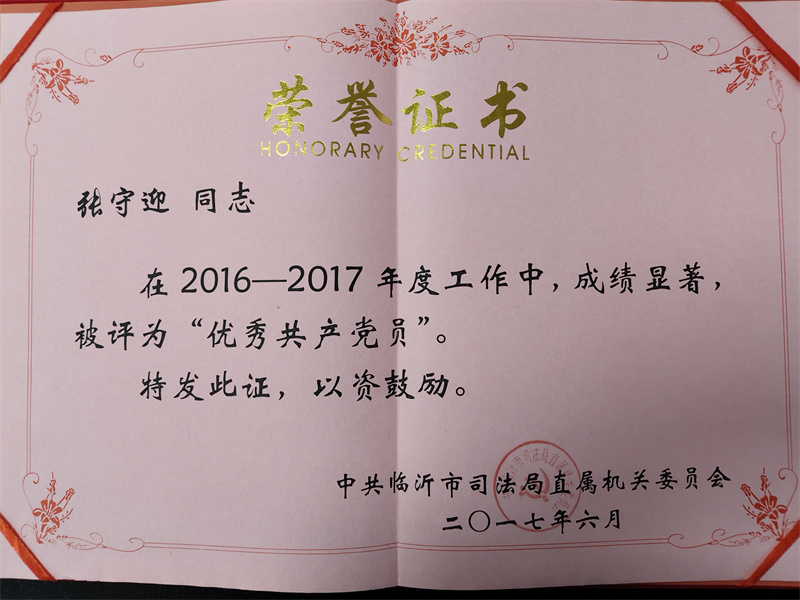 荣誉证书
HONORARY CREDENTIAL
张守迎 同志
在 2016—2017 年度工作中，成绩显著，
被评为“优秀共产党员”。
特发此证，以资鼓励。
中共临沂市司法局直属机关委员会
二〇一七年六月